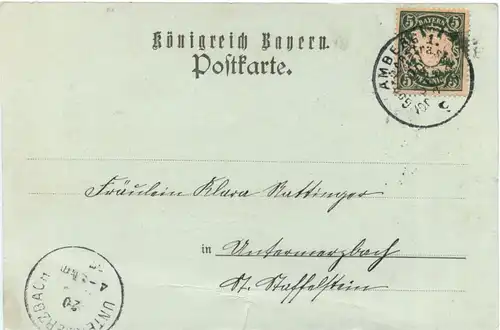 Königreich Bayern.
Postkarte.
5 BAYERN 5
AMBERG
Fräulein Klara Rattinger
in Untermerzbach
St. Staffelstein
UNTERMERZBACH
20